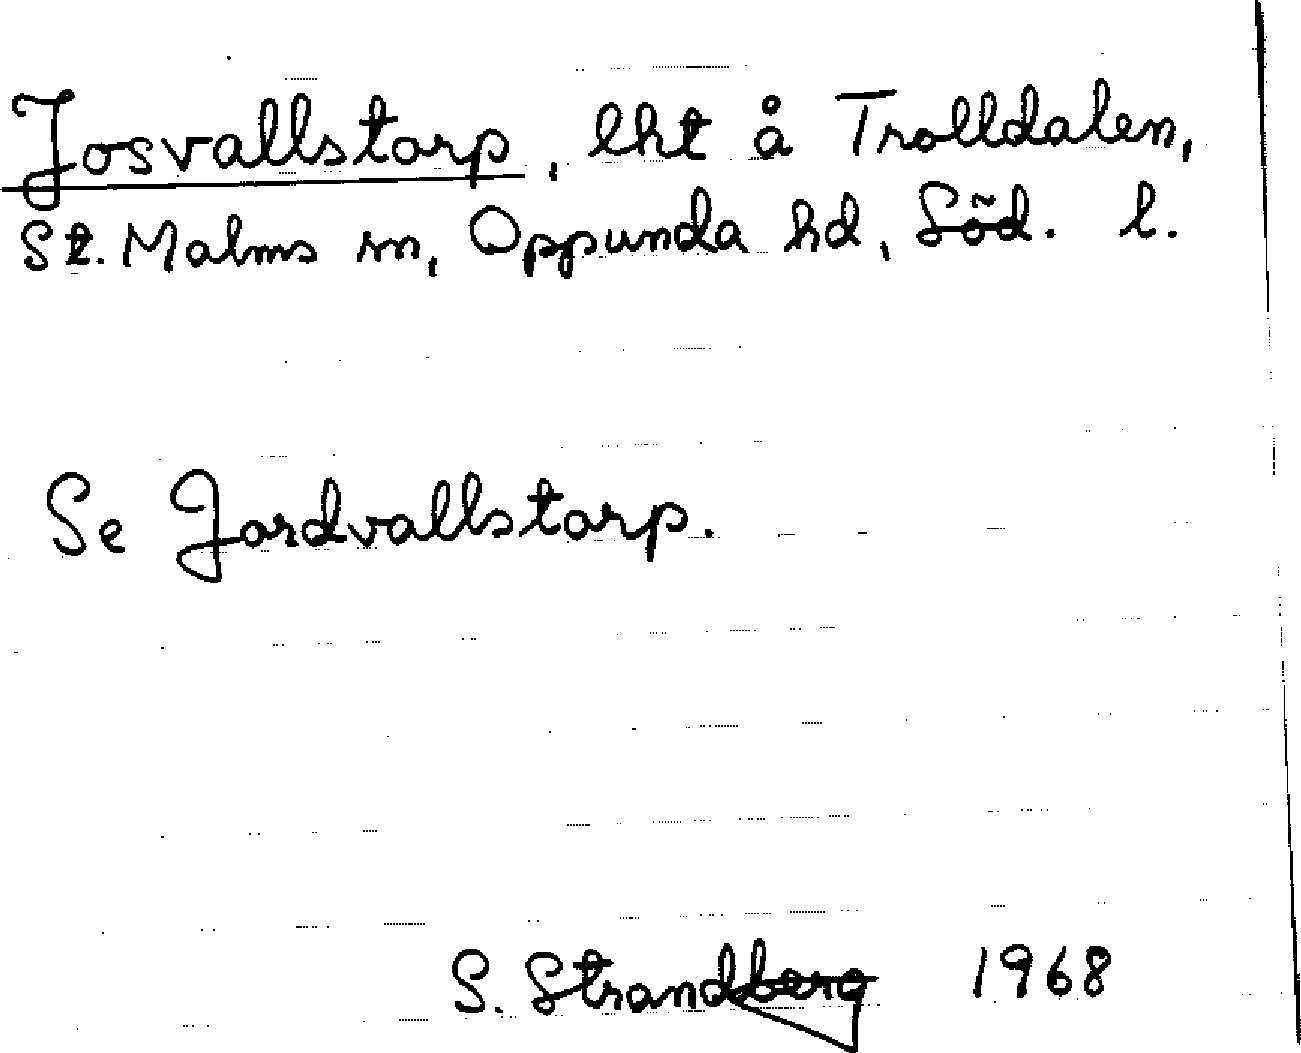 Josvallstorp, lht å Trolldalen,
St. Malms sn, Oppunda hd, Söd. l.
Se Jordvallstorp.
S. Strandberg 1968